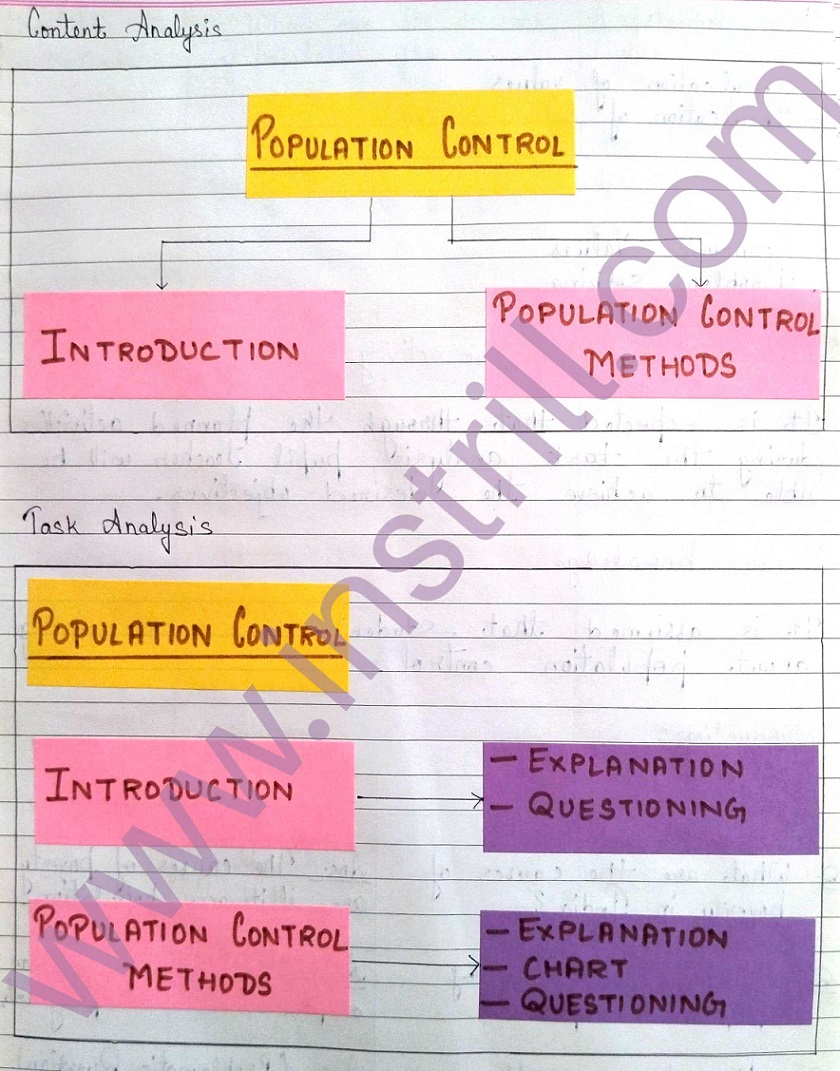 Content Analysis
POPULATION CONTROL
INTRODUCTION
POPULATION CONTROL
METHODS
Task Analysis
POPULATION CONTROL
INTRODUCTION
- EXPLANATION
- QUESTIONING
POPULATION CONTROL
METHODS
- EXPLANATION
- CHART
- QUESTIONING
www.instrill.com